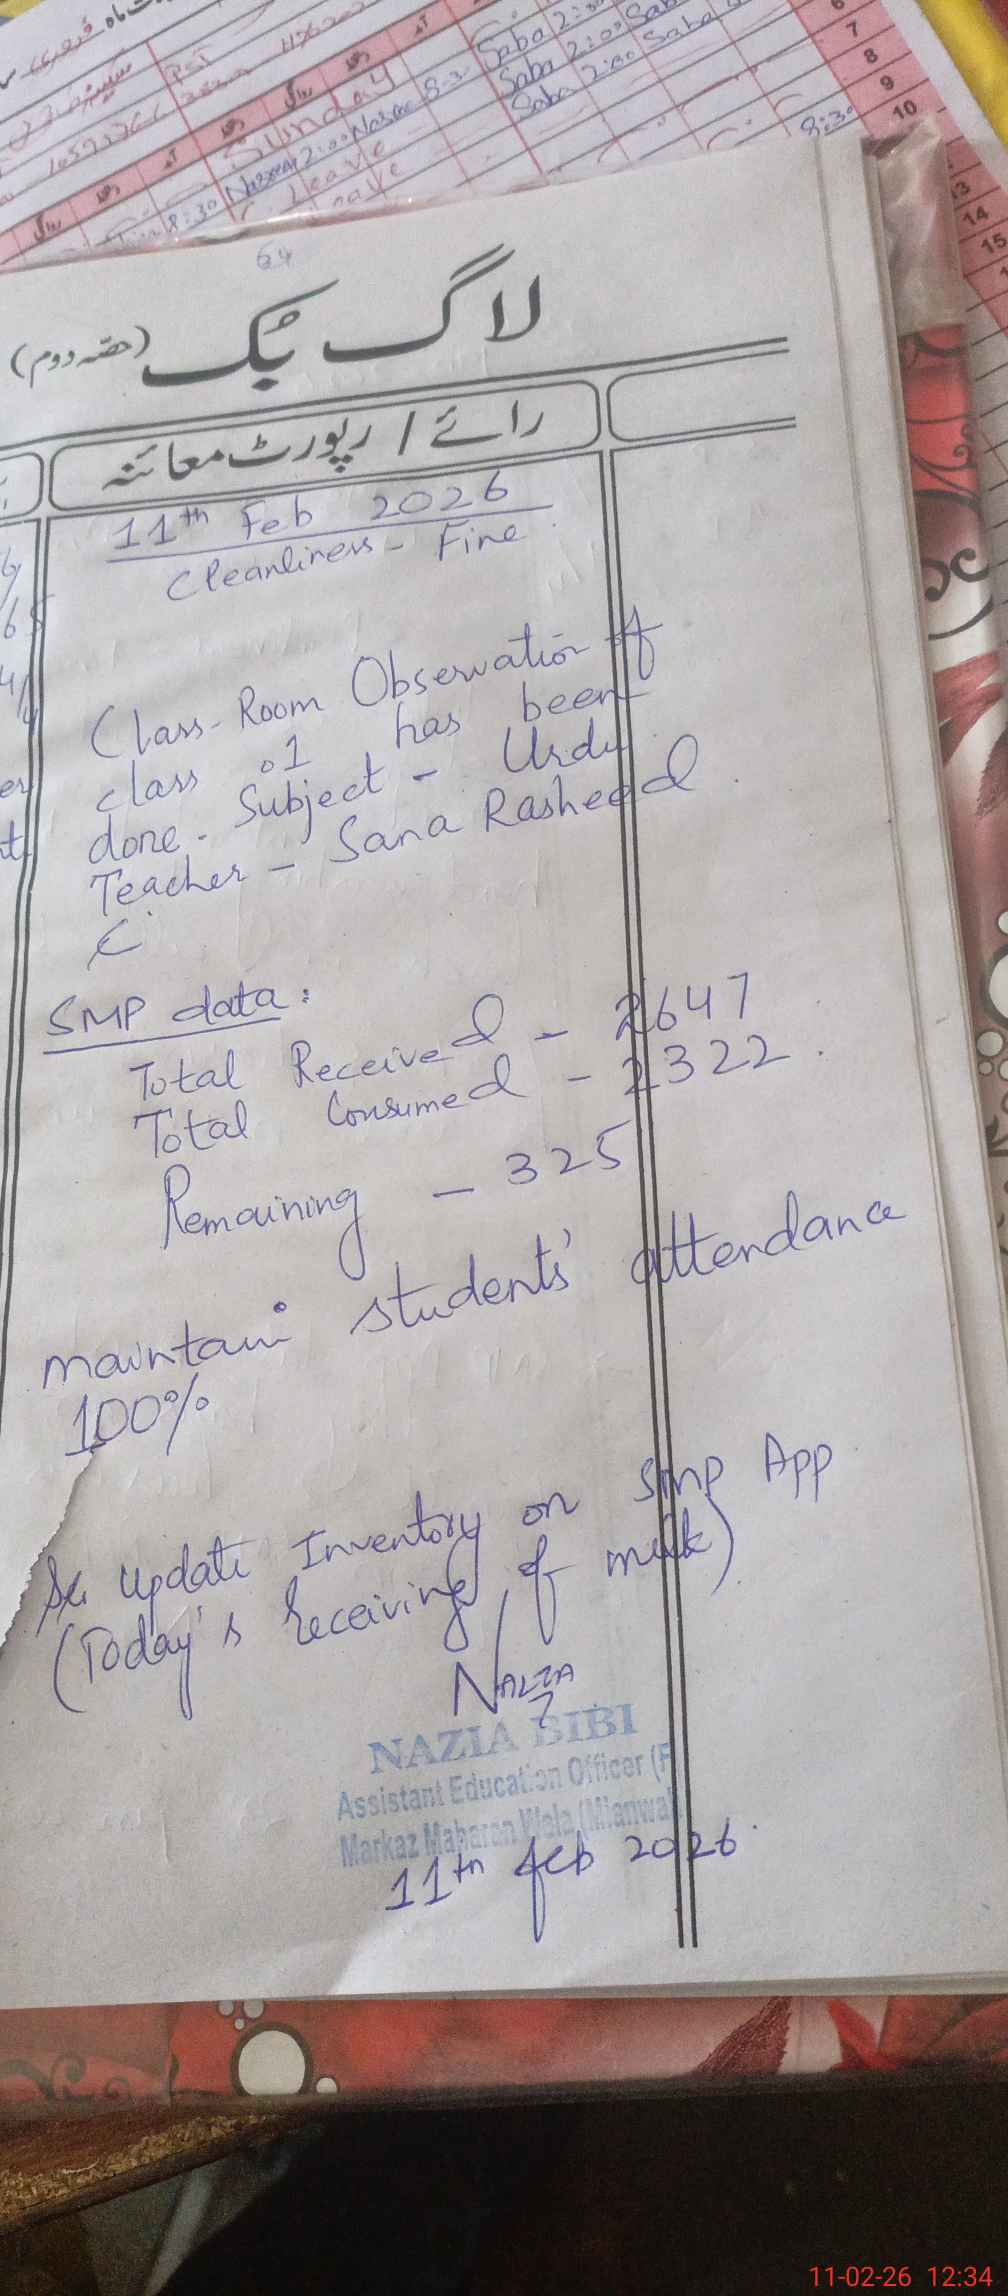 Sunday
8:30 Naseem 2:00 Naseem 8:30 Saba 2:30
Leave Saba 2:00 Saba
Saba 2:00 Saba
8:30
6
7
8
9
10
13
14
15
64
لاگ بک (حصّہ دوم)
رائے / رپورٹ معائنہ
11th Feb 2026
Cleanliness - Fine
Class-Room Observation of
class 01 has been
done. Subject - Urdu
Teacher - Sana Rasheed
SMP data:
Total Received - 2647
Total Consumed - 2322
Remaining - 325
maintain students' attendance
100%
Update Inventory on SMP App
(Today's receiving of milk)
NAZIA
NAZIA BIBI
Assistant Education Officer (F
Markaz Maharan Wala (Mianwal
11th feb 2026
11-02-26 12:34